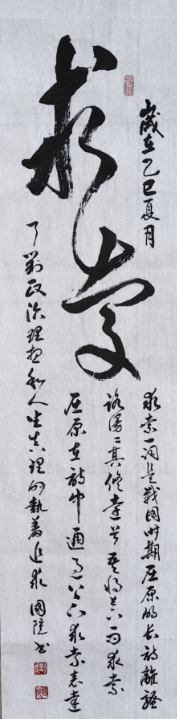 求索
岁在乙巳夏月
求索一词是战国时期屈原的长诗离骚
路漫二其修远兮吾将上下而求索
屈原在诗中通过上下求索表达
了对政治理想和人生真理的执着追求 国陞书